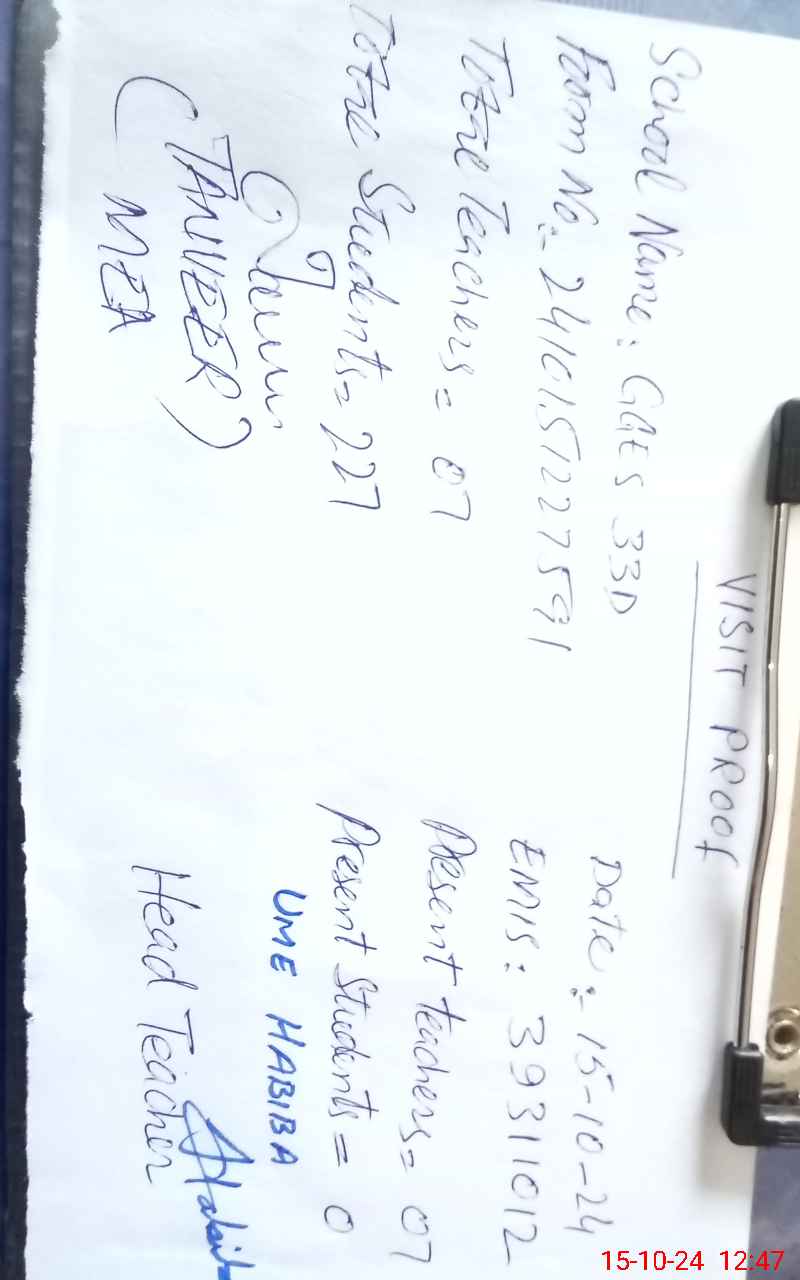 VISIT PROOF
School Name: GGES 33D Date:- 15-10-24
Form No:- 2410151227591 EMIS: 39311012
Totae Teachers = 07 Present teachers = 07
Totae Students = 227 Present Students = 0
UME HABIBA
(TANVEER) Habiba
MEA Head Teacher
15-10-24 12:47